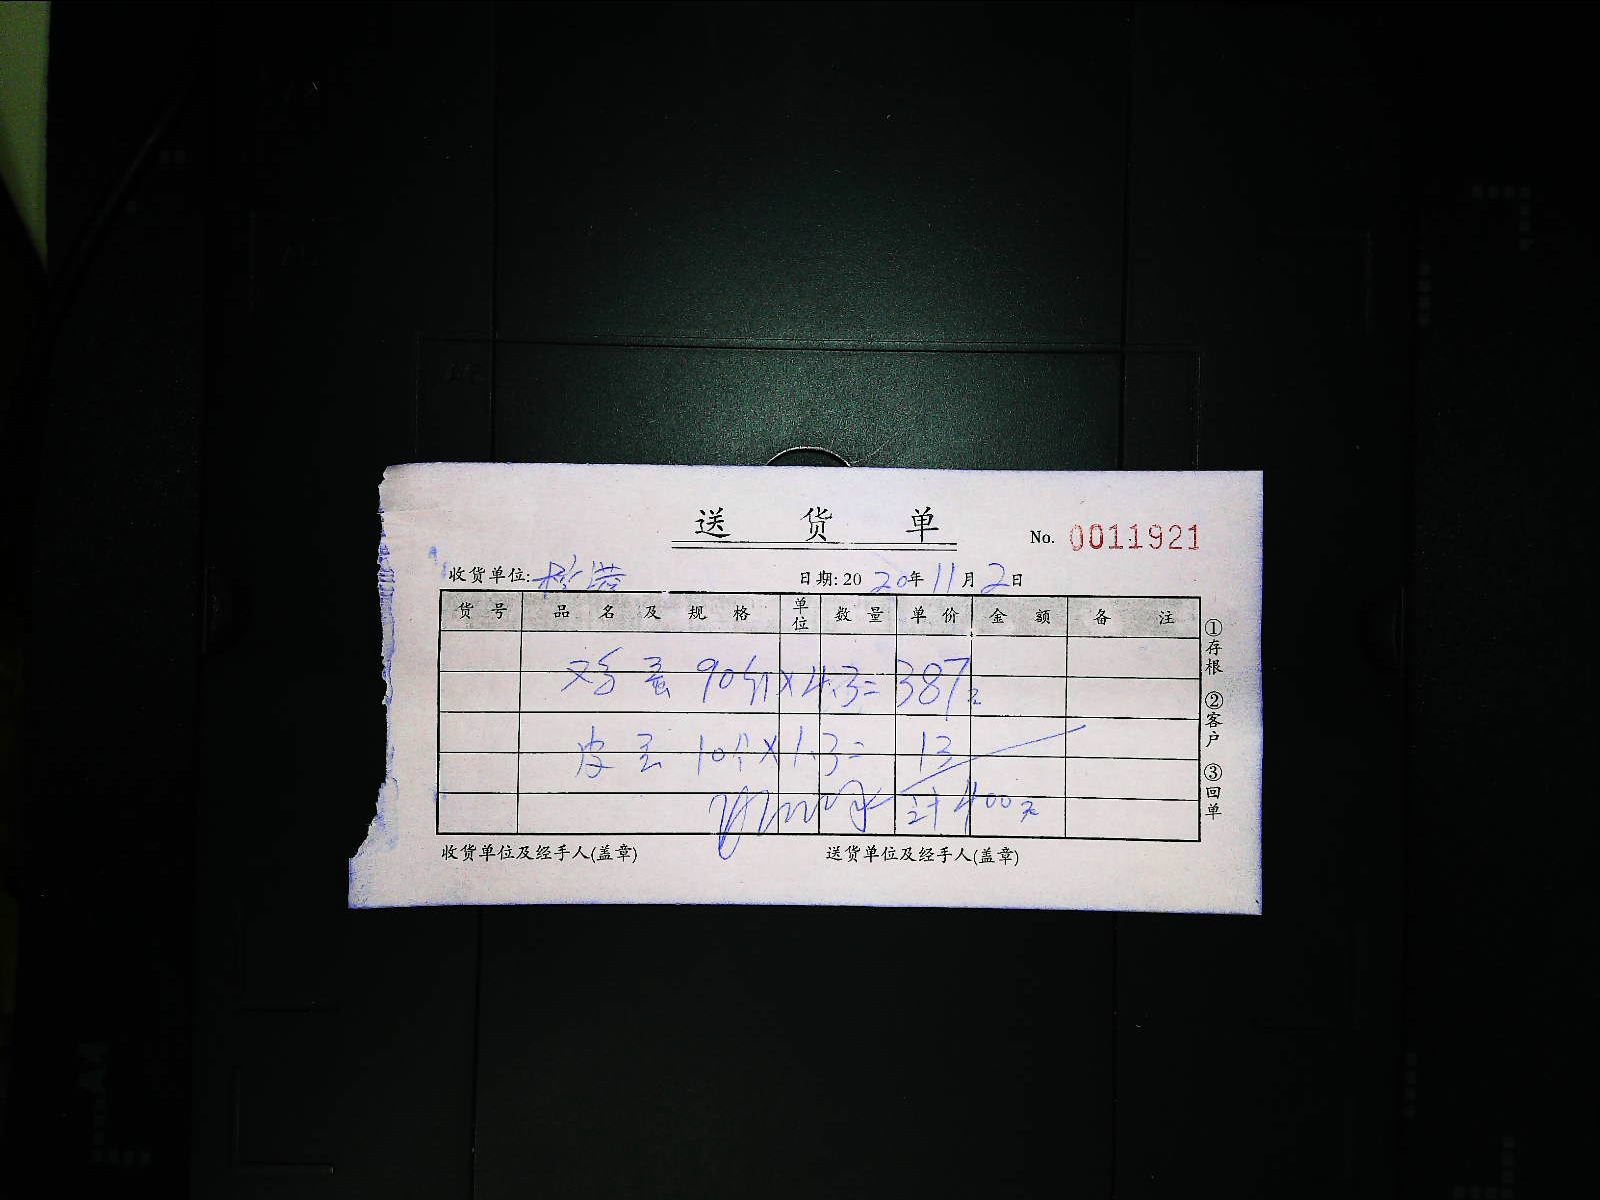 送 货 单
No. 0011921
收货单位:
日期: 2020年11月2日
货号 品名及规格 单位 数量 单价 金额 备注
鸡蛋 90斤×4.3=387元
皮蛋 10个×1.3= 13
计400元
收货单位及经手人(盖章) 送货单位及经手人(盖章)
①存根 ②客户 ③回单